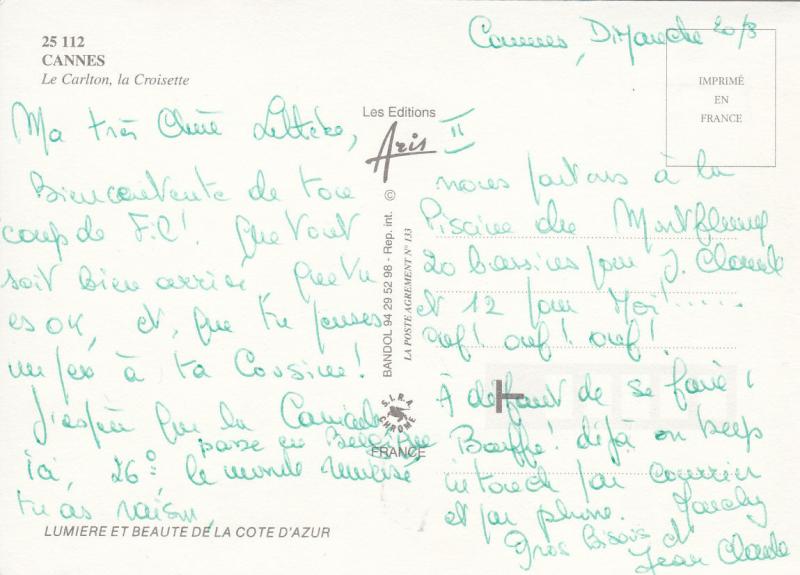 25 112
CANNES
Le Carlton, la Croisette
Cannes, Dimanche 20/8
IMPRIMÉ
EN
FRANCE
Les Editions
Aris
BANDOL 94 29 52 98 - Rep. int. ©
LA POSTE AGREMENT N° 133
S.I.R.A.
CHROME
FRANCE
Ma très Chère
Bien contente de ton
coup de Fil! que tout
soit bien arrivé que tu
es OK, et, que tu penses
un peu à ta Cousine!
J'espère que la Canicule
passe en Belgique
Ici, 26°, le monde
tu as raison,
II
nous partons à la
Piscine du Montfleury
20 bassins pour J. Claude
et 12 pour Moi!.....
ouf! ouf! ouf!
À défaut de se faire 1
Bouffe! déjà on keep
in touch par courrier
et par phone.
Gros Bisous et
Jean Claude
LUMIERE ET BEAUTE DE LA COTE D'AZUR